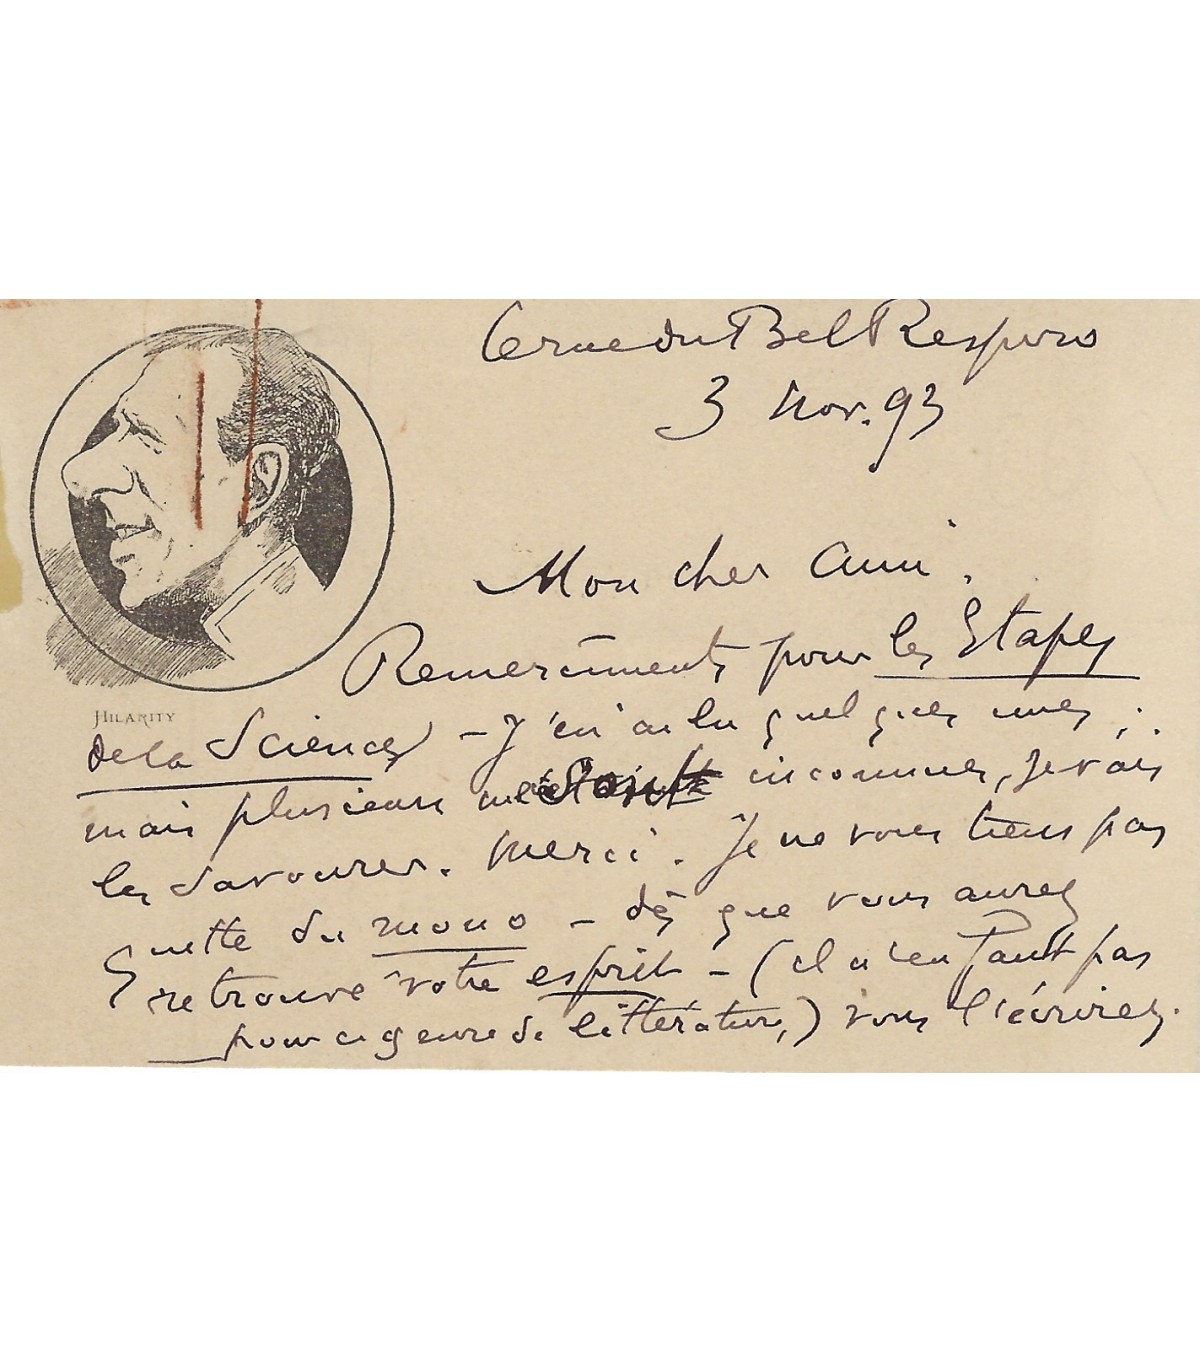 6 rue du Bel Respiro
3 Nov. 93
Mon cher ami.
Remerciments pour les Etapes
HILARITY
de la Science – J'en ai lu quelques unes;
mais plusieurs me sont inconnues, je vais
les savourer. Merci. Je ne vous tiens pas
quitte du mono – dès que vous aurez
retrouvé votre esprit – (il n'en faut pas
pour ce genre de littérature,) vous l'écrirez.